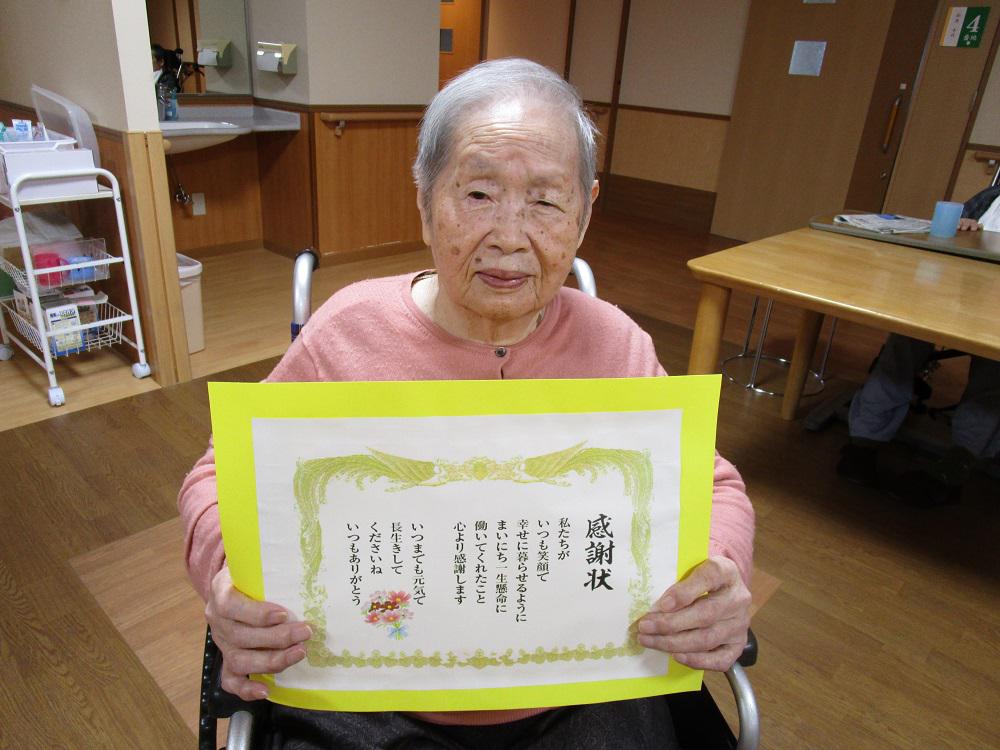 感謝状
私たちが
いつも笑顔で
幸せに暮らせるように
まいにち一生懸命に
働いてくれたこと
心より感謝します
いつまでも元気で
長生きして
くださいね
いつもありがとう
4
番地